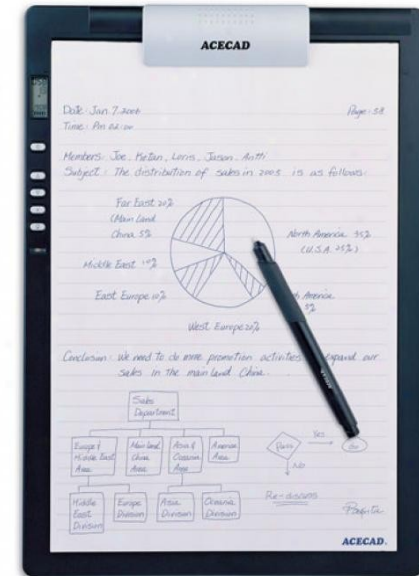 ACECAD
Date: Jan. 7. 2006
Page: 58
Time: Pm 02:00
Members: Joe, Ketan, Loris, Jason, Antti
Subject: The distribution of sales in 2005 is as follows:
Far East 20%
(Main land
China 5%
North America 35%
(U.S.A. 25%)
Middle East 10%
East Europe 10%
America
5%
West Europe 20%
Conclusion: We need to do more promotion activities expand our
sales in the main land China.
Sales
Department
Europe &
Middle East
Area
Main land
China
Area
Asia &
Oceania
Area
America
Area
Pass
Yes
Go
No
Middle
East
Division
Europe
Division
Asia
Division
Oceania
Division
Re-discuss
ACECAD.